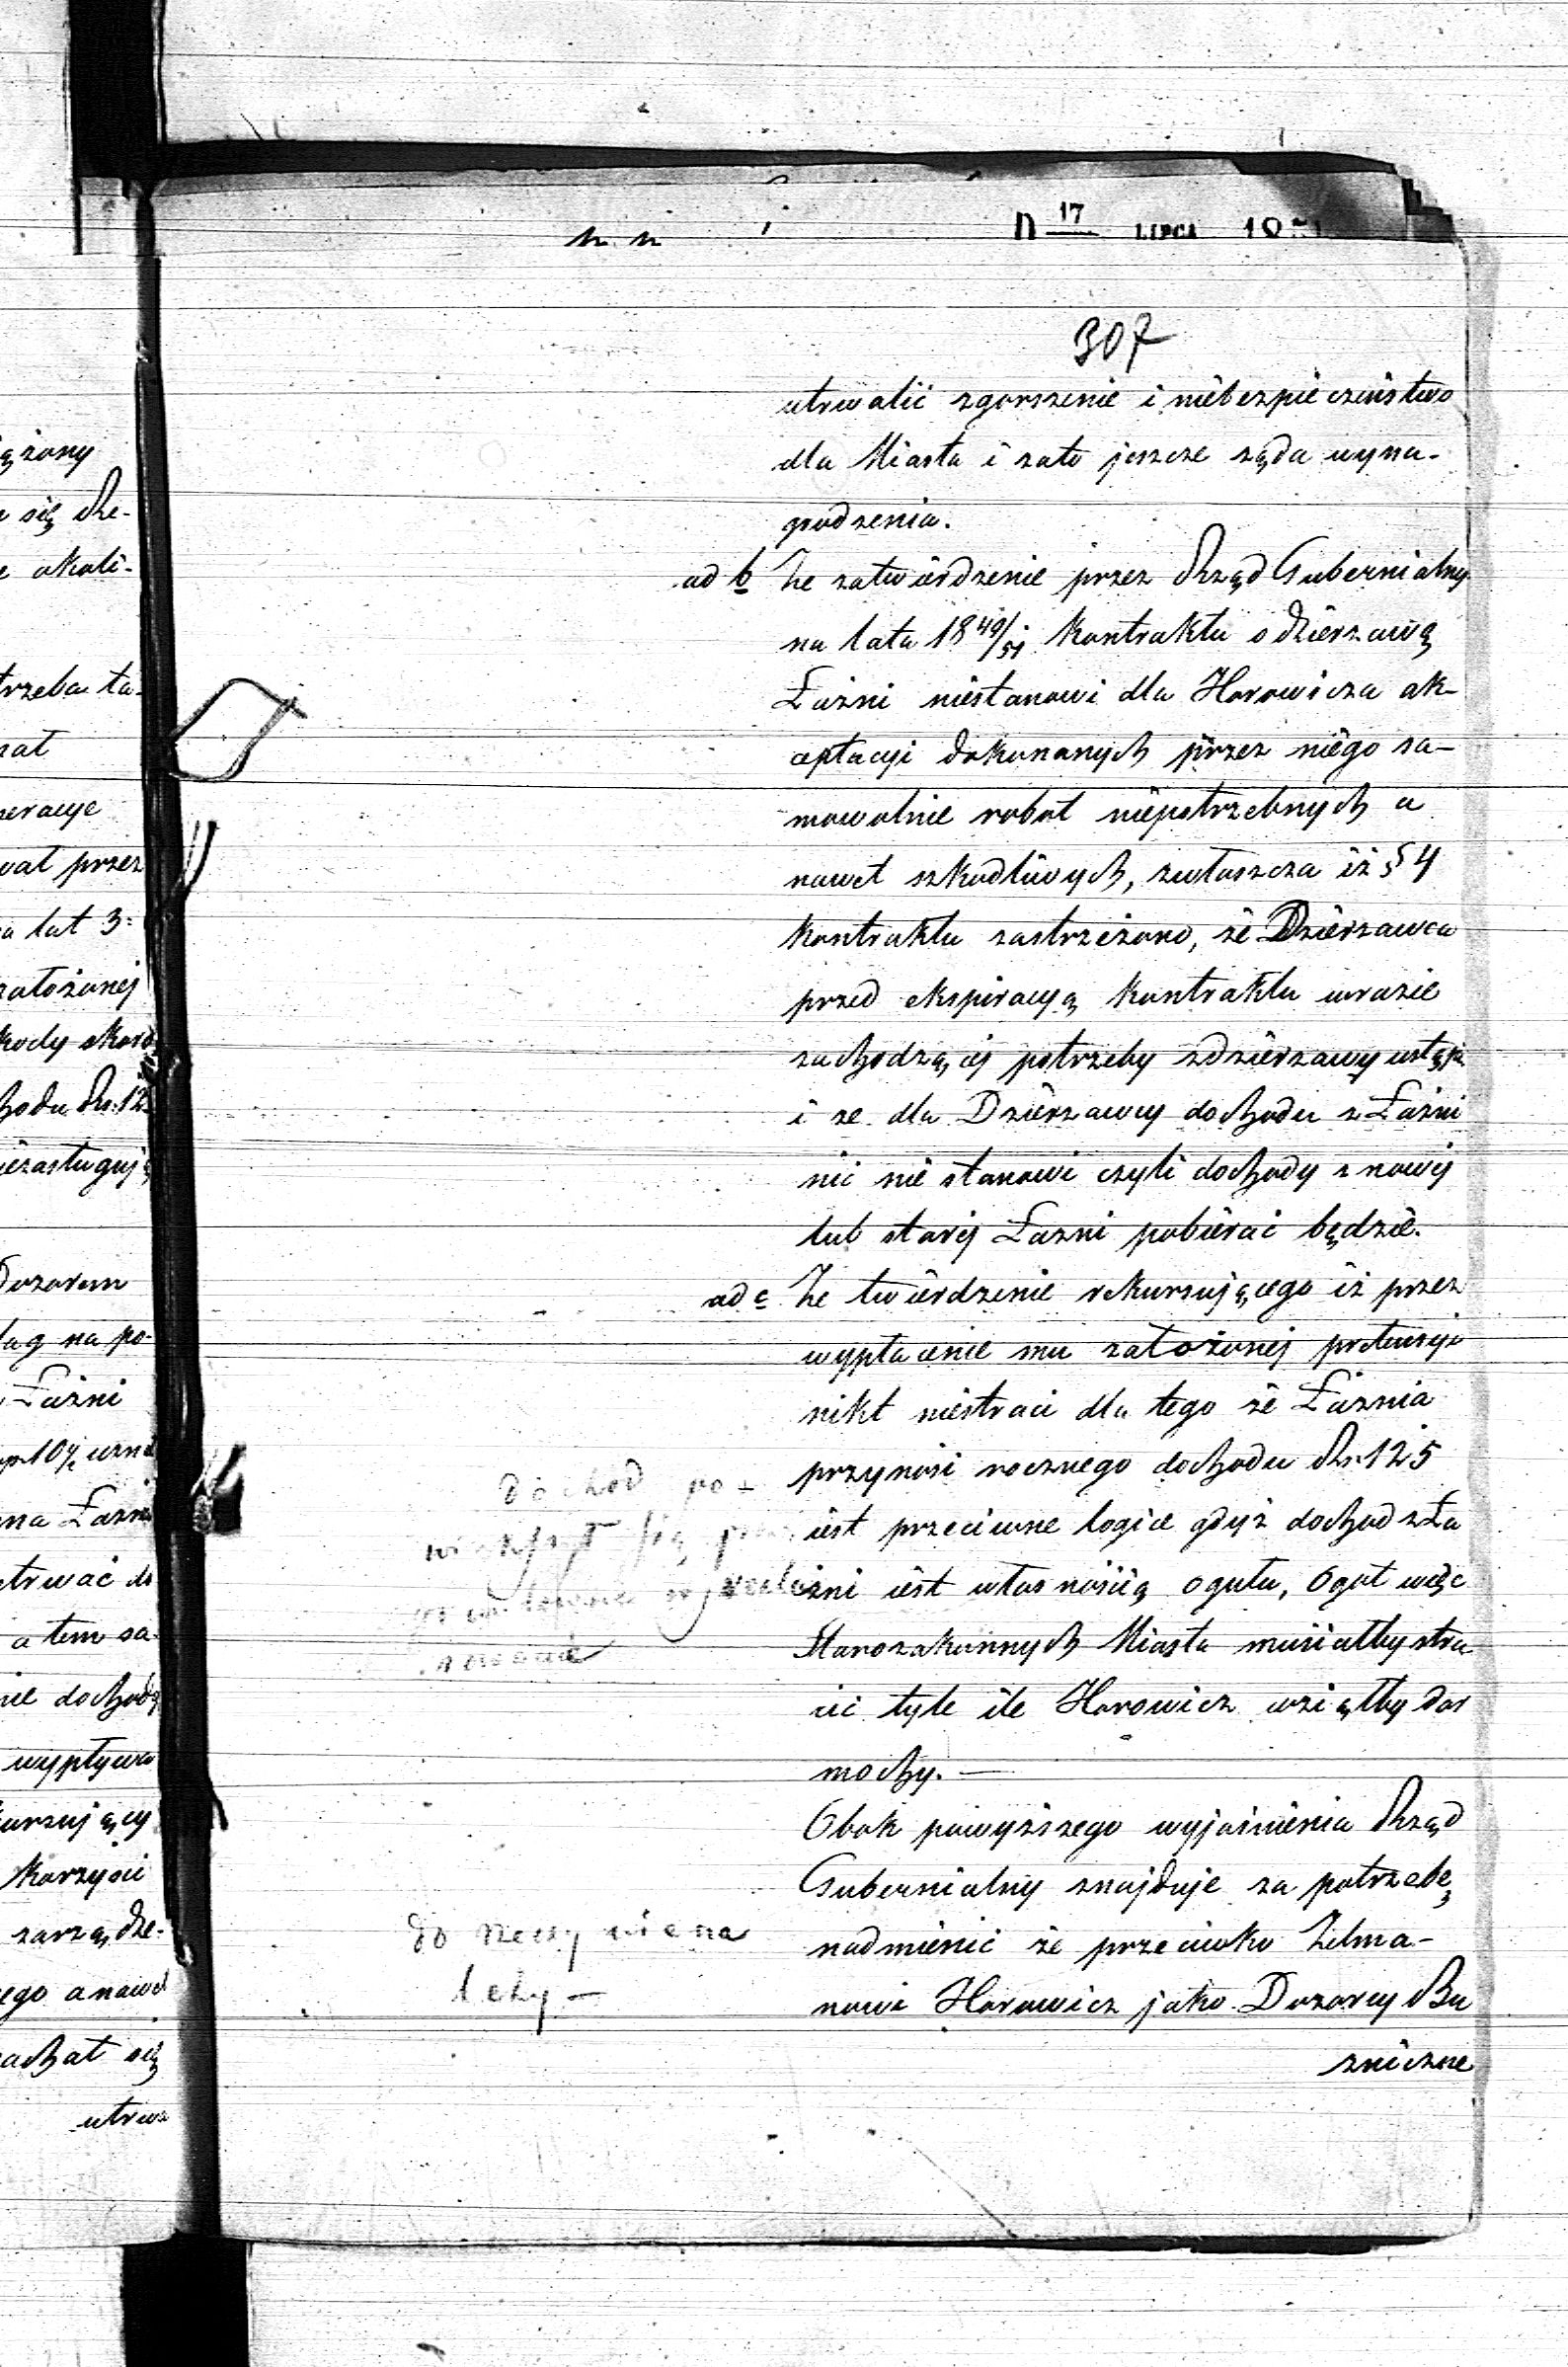 D 17 LIPCA 185
307
utrwalić zgorszenie i niebezpieczeństwo
dla Miasta i zato jeszcze ząda wyna-
grodzenia.
ad b Że zatwierdzenie przez Rząd Gubernialny
na lata 1849/51 Kontraktu o dzierzawę
Łaźni niestanowi dla Horowicza ak-
ceptacyi dokonanych przez niego sa-
mowolnie robot niepotrzebnych a
nawet szkodliwych, zwłaszcza iż § 4
Kontraktu zastrzeżono, że Dzierzawca
przed ekspiracyą Kontraktu wrazie
zachodzącej potrzeby zdzierzawy ustąpi
i ze dla Dzierzawcy dochodu z Łaźni
nic nie stanowi czyli dochody z nowej
lub starej Łazni pobierać będzie.
ad c Że twierdzenie rekursującego iż przez
wypłacenie mu założonej pretensyi
nikt niestraci dla tego że Łaznia
przynosi rocznego dochodu Rs. 125
iest przeciwne logice gdyż dochod z Ła
źni iest własnością ogułu, Ogoł więc
Starozakonnych Miasta musiałby stra
cić tyle ile Horowicz wziąłby dar
mochy. —
Obok powyższego wyjaśnienia Rząd
Gubernialny znajduje za potrzebę
nadmienić że przeciwko Zelma-
nowi Horowicz jako Dozorcy Bu
znicznе
dochod po-
się
do rzeczy niena
leży —
ążony
się Rze-
okoli-
trzeba ta-
wał przez
lat 3
założonej
kody
hodu Rs. 12
iezasługują
Dozorem
ług na po-
Łaźni
10%
na Łazni
trwać do
a tem sa
nie dochody
wypływa
kursujący
Korzyści
zarządze-
ego a nawet
achał się
utrwa